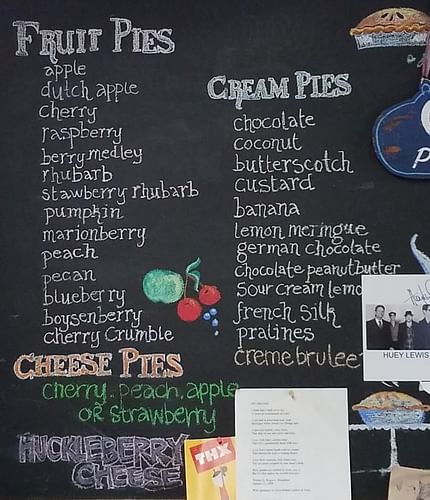 FRUIT PIES
apple
dutch apple
cherry
raspberry
berry medley
rhubarb
stawberry rhubarb
pumpkin
marionberry
peach
pecan
blueberry
boysenberry
cherry crumble
CREAM PIES
chocolate
coconut
butterscotch
custard
banana
lemon meringue
german chocolate
chocolate peanutbutter
sour cream lemo
french silk
pralines
creme brulee
CHEESE PIES
cherry, peach, apple
OR strawberry
HUCKLEBERRY
CHEESE
THX
HUEY LEWIS